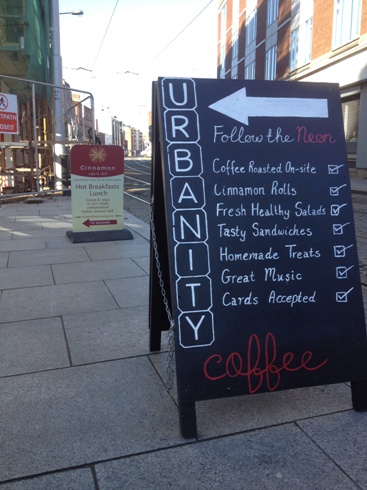 URBANITY
Follow the Neon
Coffee Roasted On-site
Cinnamon Rolls
Fresh Healthy Salads
Tasty Sandwiches
Homemade Treats
Great Music
Cards Accepted
coffee
Cinnamon
Hot Breakfasts
Lunch